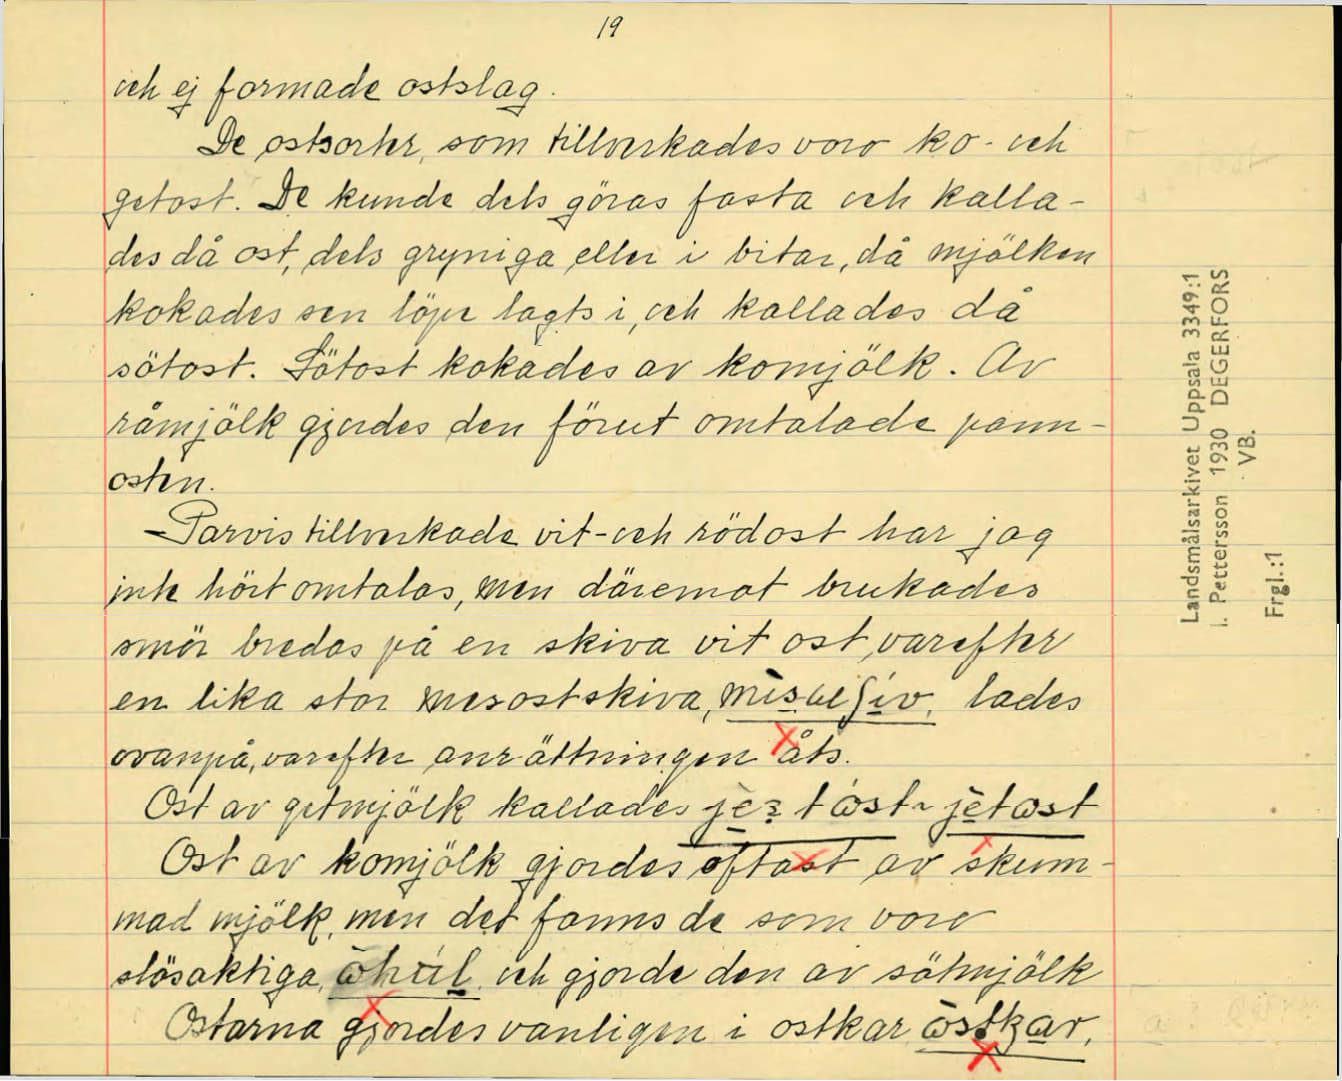 19
och ej formade ostslag.
De ostsorter, som tillverkades voro ko- och
getost. De kunde dels göras fasta och kalla-
des då ost, dels gryniga eller i bitar, då mjölken
kokades sen löpe lagts i, och kallades då
sötost. Sötost kokades av komjölk. Av
råmjölk gjordes den förut omtalade pann-
osten.
Parvis tillverkade vit- och rödost har jag
inte hört omtalas, men däremot brukades
smör bredas på en skiva vit ost, varefter
en lika stor mesostskiva, lades
ovanpå, varefter anrättningen åts.
Ost av getmjölk kallades
Ost av komjölk gjordes oftast av skum-
mad mjölk, men det fanns de som voro
slösaktiga, och gjorde den av sötmjölk
Ostarna gjordes vanligen i ostkar
Landsmålsarkivet Uppsala 3349:1
I. Pettersson 1930 DEGERFORS
VB.
Frgl.:1